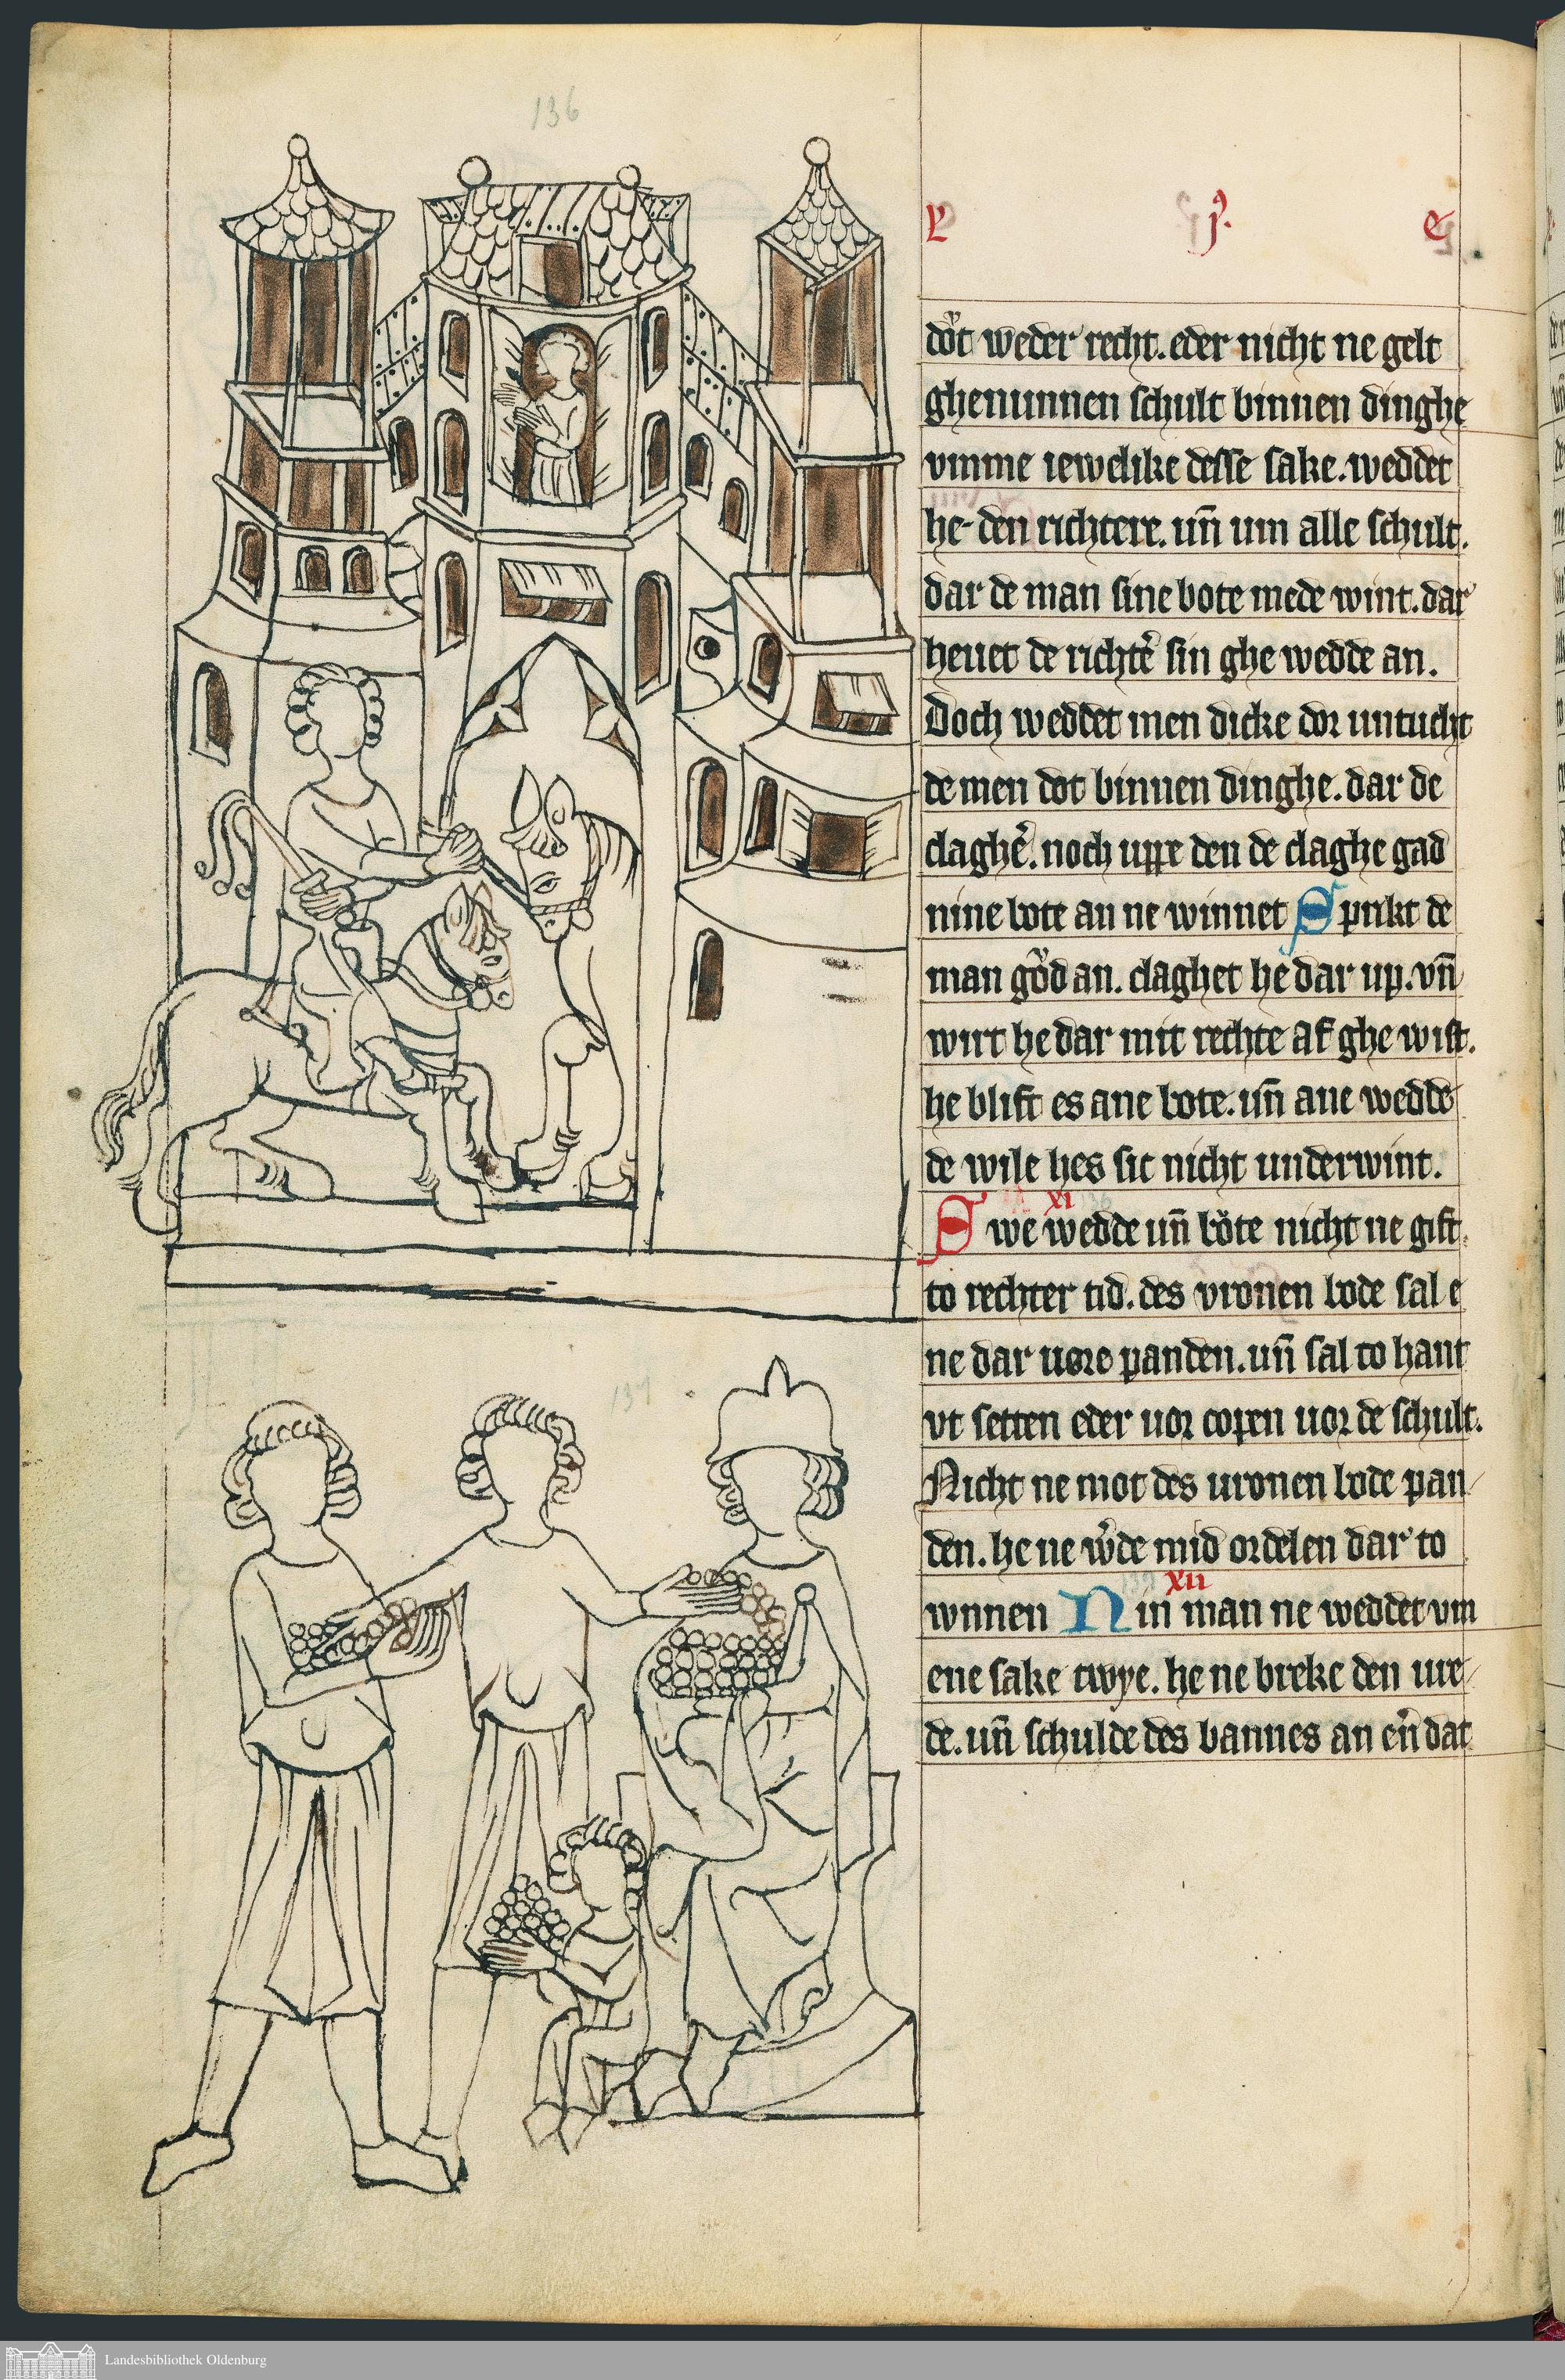 136
L j. e
dͦt weder recht. eder nicht ne gelt
ghewunnen schult binnen dinghe
vmme iewelike desse sake. weddet
he den richtere. un̄ um alle schult.
dar de man sine bote mede wint. dar
heuet de richtē sin ghe wedde an.
Doch weddet men dicke dor untucht
de men dot binnen dinghe. dar de
claghē. noch uppe den de claghe gad
nine bote an ne winnet Sprikt de
man gͦd an. claghet he dar up. vn̄
wirt he dar mit rechte af ghe wist.
he blift es ane bote. un̄ ane wedde
de wile hes sic nicht underwint.
XI
Swe wedde un̄ bͦte nicht ne gift
to rechter tid. des vronen bode sal e
ne dar uore panden. un̄ sal to hant
vt setten eder uor copen uor de schult.
137
Nicht ne mot des uronen bode pan
den. he ne w̄de mid ordelen dar to
XII
wnnen Nin man ne weddet vm
ene sake twye. he ne breke den ure
de. un̄ schulde des bannes an en̄ dat
Landesbibliothek Oldenburg